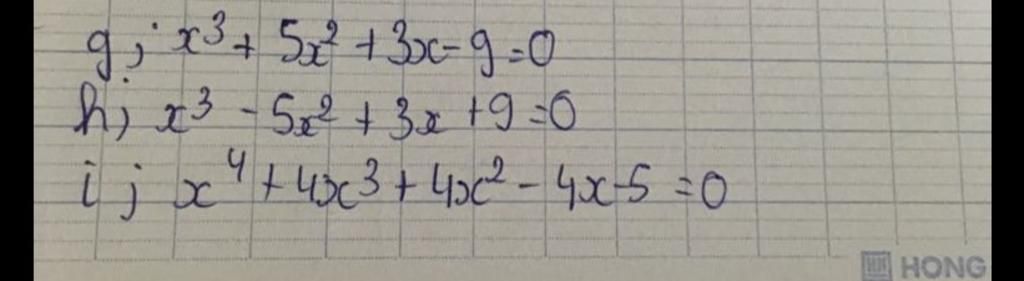 g; x³ + 5x² + 3x - 9 = 0
h; x³ - 5x² + 3x + 9 = 0
i; x⁴ + 4x³ + 4x² - 4x - 5 = 0
HONG